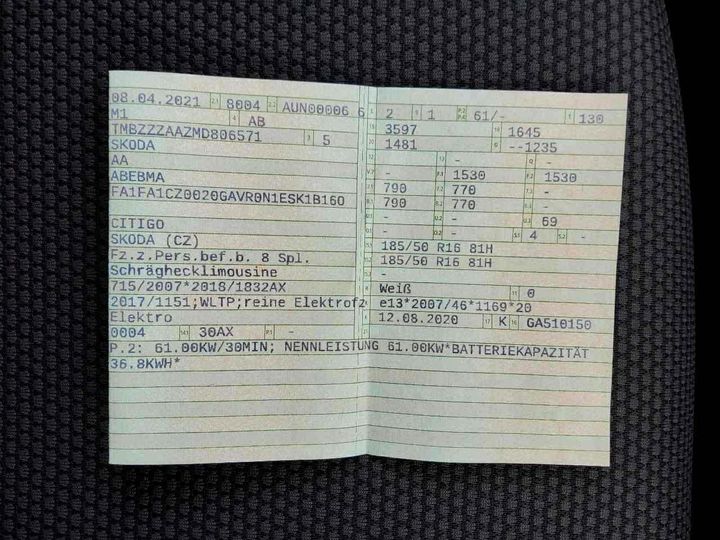 08.04.2021 8004 AUN00006 6 2 1 61/- 130
M1 AB 3597 1645
TMBZZZAAZMD806571 5 1481 --1235
SKODA - -
AA - 1530 1530
ABEBMA 790 770 -
FA1FA1CZ0020GAVR0N1ESK1B160 790 770 -
- - 69
CITIGO - - 4 -
SKODA (CZ) 185/50 R16 81H
Fz.z.Pers.bef.b. 8 Spl. 185/50 R16 81H
Schräghecklimousine -
715/2007*2018/1832AX Weiß 0
2017/1151;WLTP;reine Elektrofz e13*2007/46*1169*20
Elektro 12.08.2020 K GA510150
0004 30AX -
P.2: 61.00KW/30MIN; NENNLEISTUNG 61.00KW*BATTERIEKAPAZITÄT
36.8KWH*